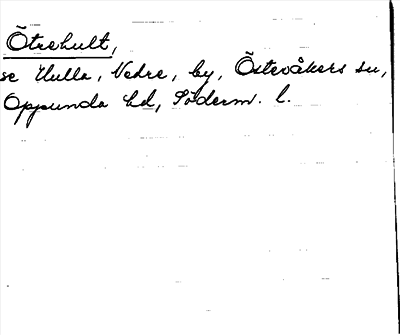 Õtrehult,
se Ulla, Nedre, by, Östevåkers sn,
Oppunda hd, Söderm. l.